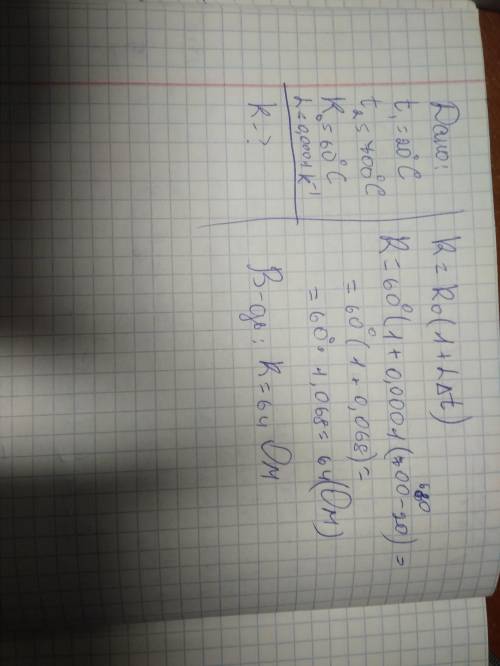 Дано:
t₁ = 20°C
t₂ = 700°C
R₀ = 60°C
L = 0,0001 K⁻¹
R - ?
R = R₀(1 + LΔt)
680
R = 60°(1 + 0,0001(700-20) =
= 60°(1 + 0,068) =
= 60° · 1,068 = 64(Ом)
В-дь: R = 64 Ом